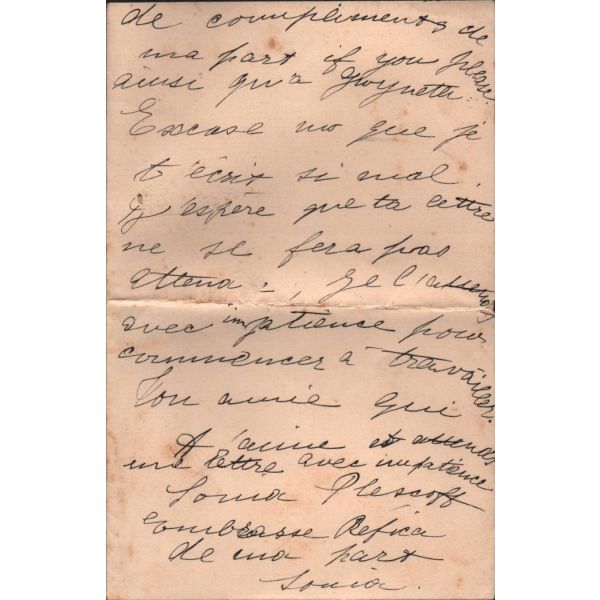 de compliments de
ma part if you please.
ainsi qu'a Gwyneth.
Excuse mo que je
t'écrit si mal.
J'éspère que ta lettre
ne se fera pas
attend-, Je l'attends
avec impatience pour
commencer à travailler.
Ton amie qui
t'aime et attends
une lettre avec impatience
Sonia Plescoff
Embrasse Refica
de ma part
Sonia.